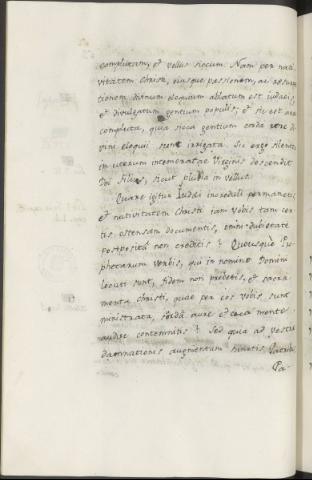 complutam, et vellus siccum. Nam per nati
vitatem Christi, eiusque passionem, ac resurrec
tionem, divinum eloquium ablatum est iudaeis,
et divulgatum gentium populis; et sic est area
compluta, quia sicca gentium corda rore di
vini eloquii sunt irrigata. Sic ergo silenter
in uterum intemeratae Virginis descendit
Dei filius, sicut pluvia in vellus.
Quare igitur Iudaei increduli permanetis,
et nativitatem Christi iam vobis tam cer
tis ostensam documentis, omni dubietate
postposita non creditis? Quousque Pro
phetarum verbis, qui in nomine Domini
locuti sunt, fidem non praebetis, et sacra
menta Christi, quae per eos vobis sunt
ministrata, surda aure et caeca mente
audire contemnitis? Sed quia ad vestrae
damnationis augmentum
Pa-